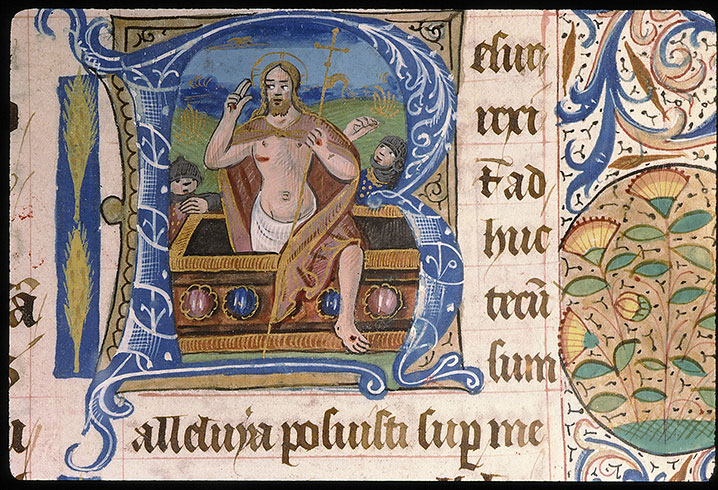 R esur
rexi
⁊ ad
huc
tecū
sum
alleluya posuisti suꝑ me